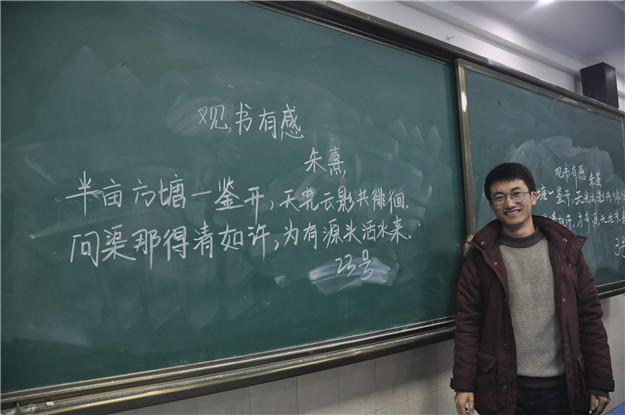 观书有感
朱熹
半亩方塘一鉴开，天光云影共徘徊.
问渠那得清如许，为有源头活水来.
23号
观书有感 朱熹
塘一鉴开，天光云影共徘
清如许，为有源头活水来